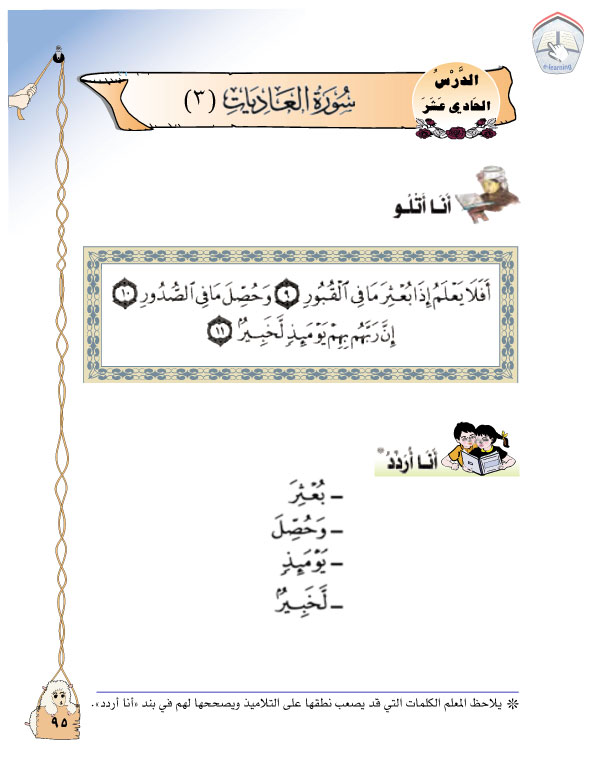 e-learning
الدَّرْسُ
الحَادِي عَشَرَ
سُورَةُ الْعَادِيَاتِ (٣)
أَنَا أَتْلُو
أَفَلَا يَعْلَمُ إِذَا بُعْثِرَ مَا فِي الْقُبُورِ ٩ وَحُصِّلَ مَا فِي الصُّدُورِ ١٠
إِنَّ رَبَّهُم بِهِمْ يَوْمَئِذٍ لَّخَبِيرٌ ١١
أَنَا أُرَدِّدُ*
– بُعْثِرَ
– وَحُصِّلَ
– يَوْمَئِذٍ
– لَّخَبِيرٌ
* يلاحظ المعلم الكلمات التي قد يصعب نطقها على التلاميذ ويصححها لهم في بند «أنا أردد».
٩٥